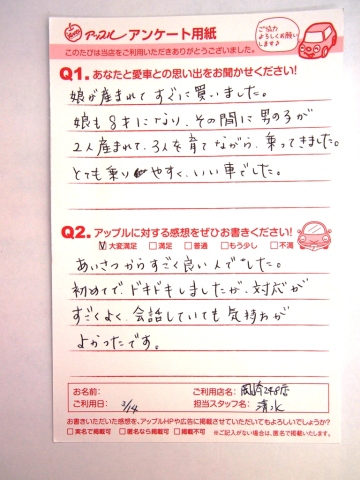 アップル アンケート用紙
ご協力
よろしくお願い
します♪
このたびは当店をご利用いただきありがとうございました。
Q1. あなたと愛車との思い出をお聞かせください!
娘が産まれてすぐに買いました。
娘も8才になり、その間に男の子が
2人産まれて、3人を育てながら、乗ってきました。
とても乗りやすく、いい車でした。
Q2. アップルに対する感想をぜひお書きください!
☑大変満足 □満足 □普通 □もう少し □不満
あいさつからすごく良い人でした。
初めてで、ドキドキしましたが、対応が
すごくよく、会話していても気持ちが
よかったです。
お名前: ご利用店名: 岡崎248店
ご利用日: 2/14 担当スタッフ名: 清水
お書きいただいた感想を、アップルHPや広告に掲載させていただいてもよろしいでしょうか?
□実名で掲載可 □匿名なら掲載可 □掲載不可 ※ご記入がない場合は、匿名で掲載いたします。